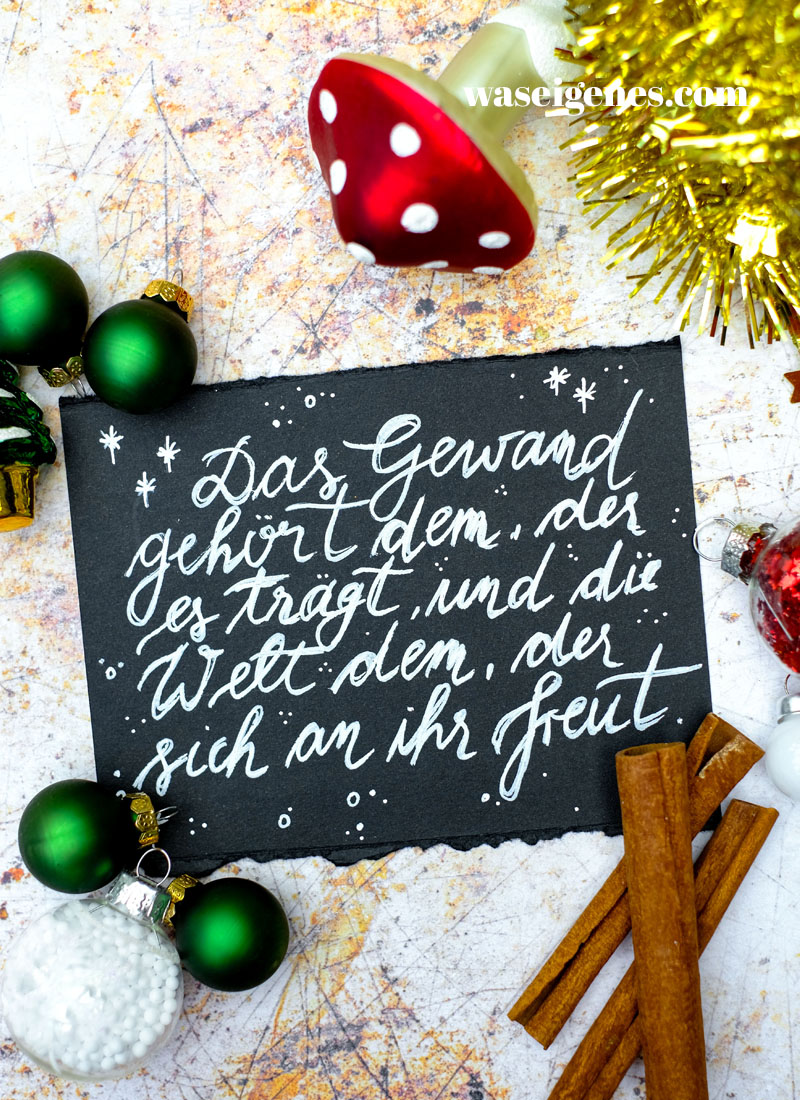 waseigenes.com
Das Gewand
gehört dem, der
es trägt, und die
Welt dem, der
sich an ihr freut.